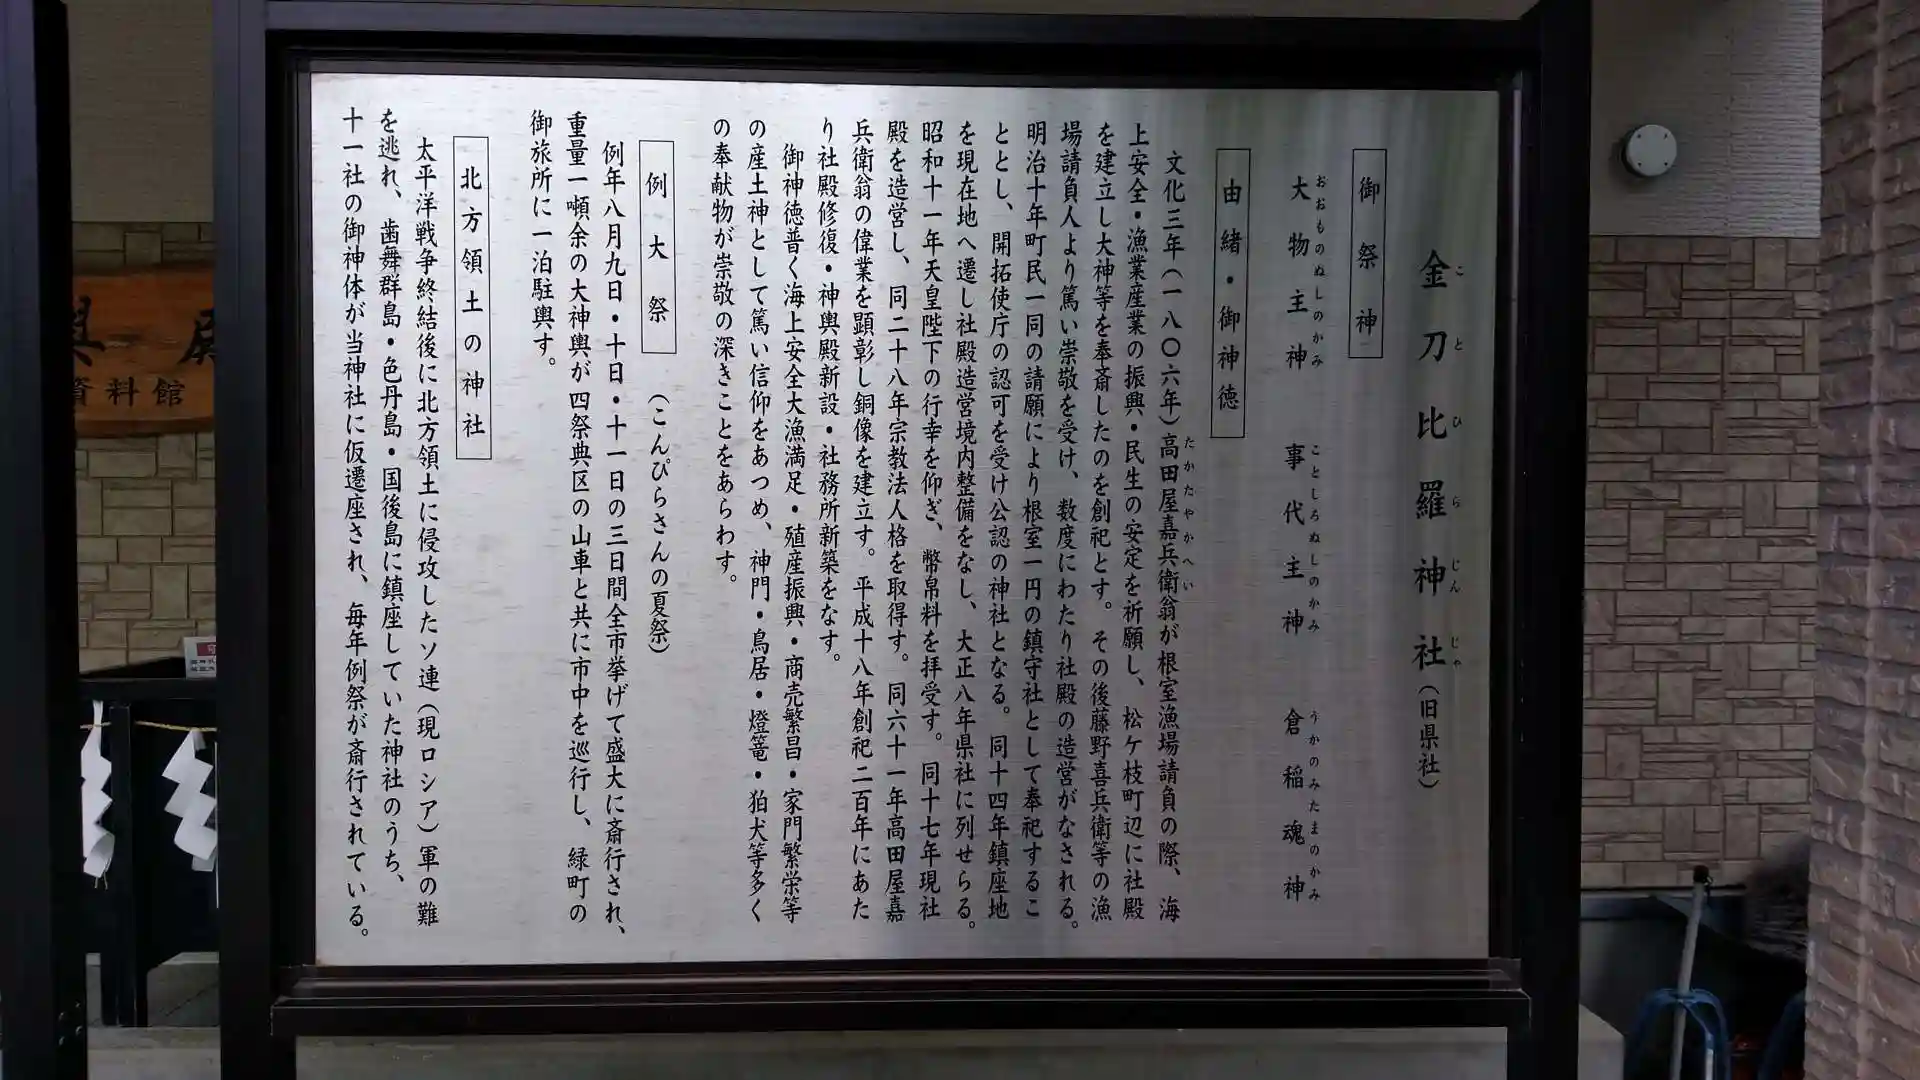 金刀比羅神社(旧県社)
こと ひ ら じん じゃ
御祭神
大物主神 事代主神 倉稲魂神
おおものぬしのかみ ことしろぬしのかみ うかのみたまのかみ
由緒・御神徳
文化三年(一八〇六年)高田屋嘉兵衛翁が根室漁場請負の際、海
たかたやかへい
上安全・漁業産業の振興・民生の安定を祈願し、松ケ枝町辺に社殿
を建立し大神等を奉斎したのを創祀とす。その後藤野喜兵衛等の漁
場請負人より篤い崇敬を受け、数度にわたり社殿の造営がなされる。
明治十年町民一同の請願により根室一円の鎮守社として奉祀するこ
ととし、開拓使庁の認可を受け公認の神社となる。同十四年鎮座地
を現在地へ遷し社殿造営境内整備をなし、大正八年県社に列せらる。
昭和十一年天皇陛下の行幸を仰ぎ、幣帛料を拝受す。同十七年現社
殿を造営し、同二十八年宗教法人格を取得す。同六十一年高田屋嘉
兵衛翁の偉業を顕彰し銅像を建立す。平成十八年創祀二百年にあた
り社殿修復・神輿殿新設・社務所新築をなす。
御神徳普く海上安全大漁満足・殖産振興・商売繁昌・家門繁栄等
の産土神として篤い信仰をあつめ、神門・鳥居・燈篭・狛犬等多く
の奉献物が崇敬の深きことをあらわす。
例大祭 (こんぴらさんの夏祭)
例年八月九日・十日・十一日の三日間全市挙げて盛大に斎行され、
重量一噸余の大神輿が四祭典区の山車と共に市中を巡行し、緑町の
御旅所に一泊駐輿す。
北方領土の神社
太平洋戦争終結後に北方領土に侵攻したソ連(現ロシア)軍の難
を逃れ、歯舞群島・色丹島・国後島に鎮座していた神社のうち、
十一社の御神体が当神社に仮遷座され、毎年例祭が斎行されている。
輿殿
資料館